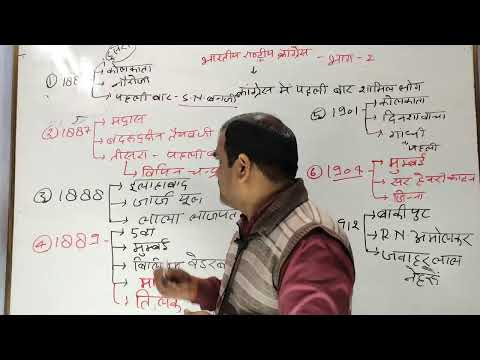 भारतीय राष्ट्रीय कांग्रेस - भाग - 2
कांग्रेस मे पहली बार शामिल लोग
① 188
कोलकाता
नौरोजी
पहली बार - S.N. बनर्जी
② 1887
मद्रास
बदरूद्दीन तैयबजी
तीसरा - पहली
विपिन चन्द्र
③ 1888
इलाहाबाद
जार्ज यूल
लाला लाजपत
④ 1889
5वा
मुम्बई
तिलक
⑤ 1901
कोलकाता
दिनशावाचा
गांधी
पहली
⑥ 1904
मुम्बई
सर हेनरी काटन
जिन्ना
912
बांकीपुर
R.N. अमोलकर
जवाहर लाल
नेहरू